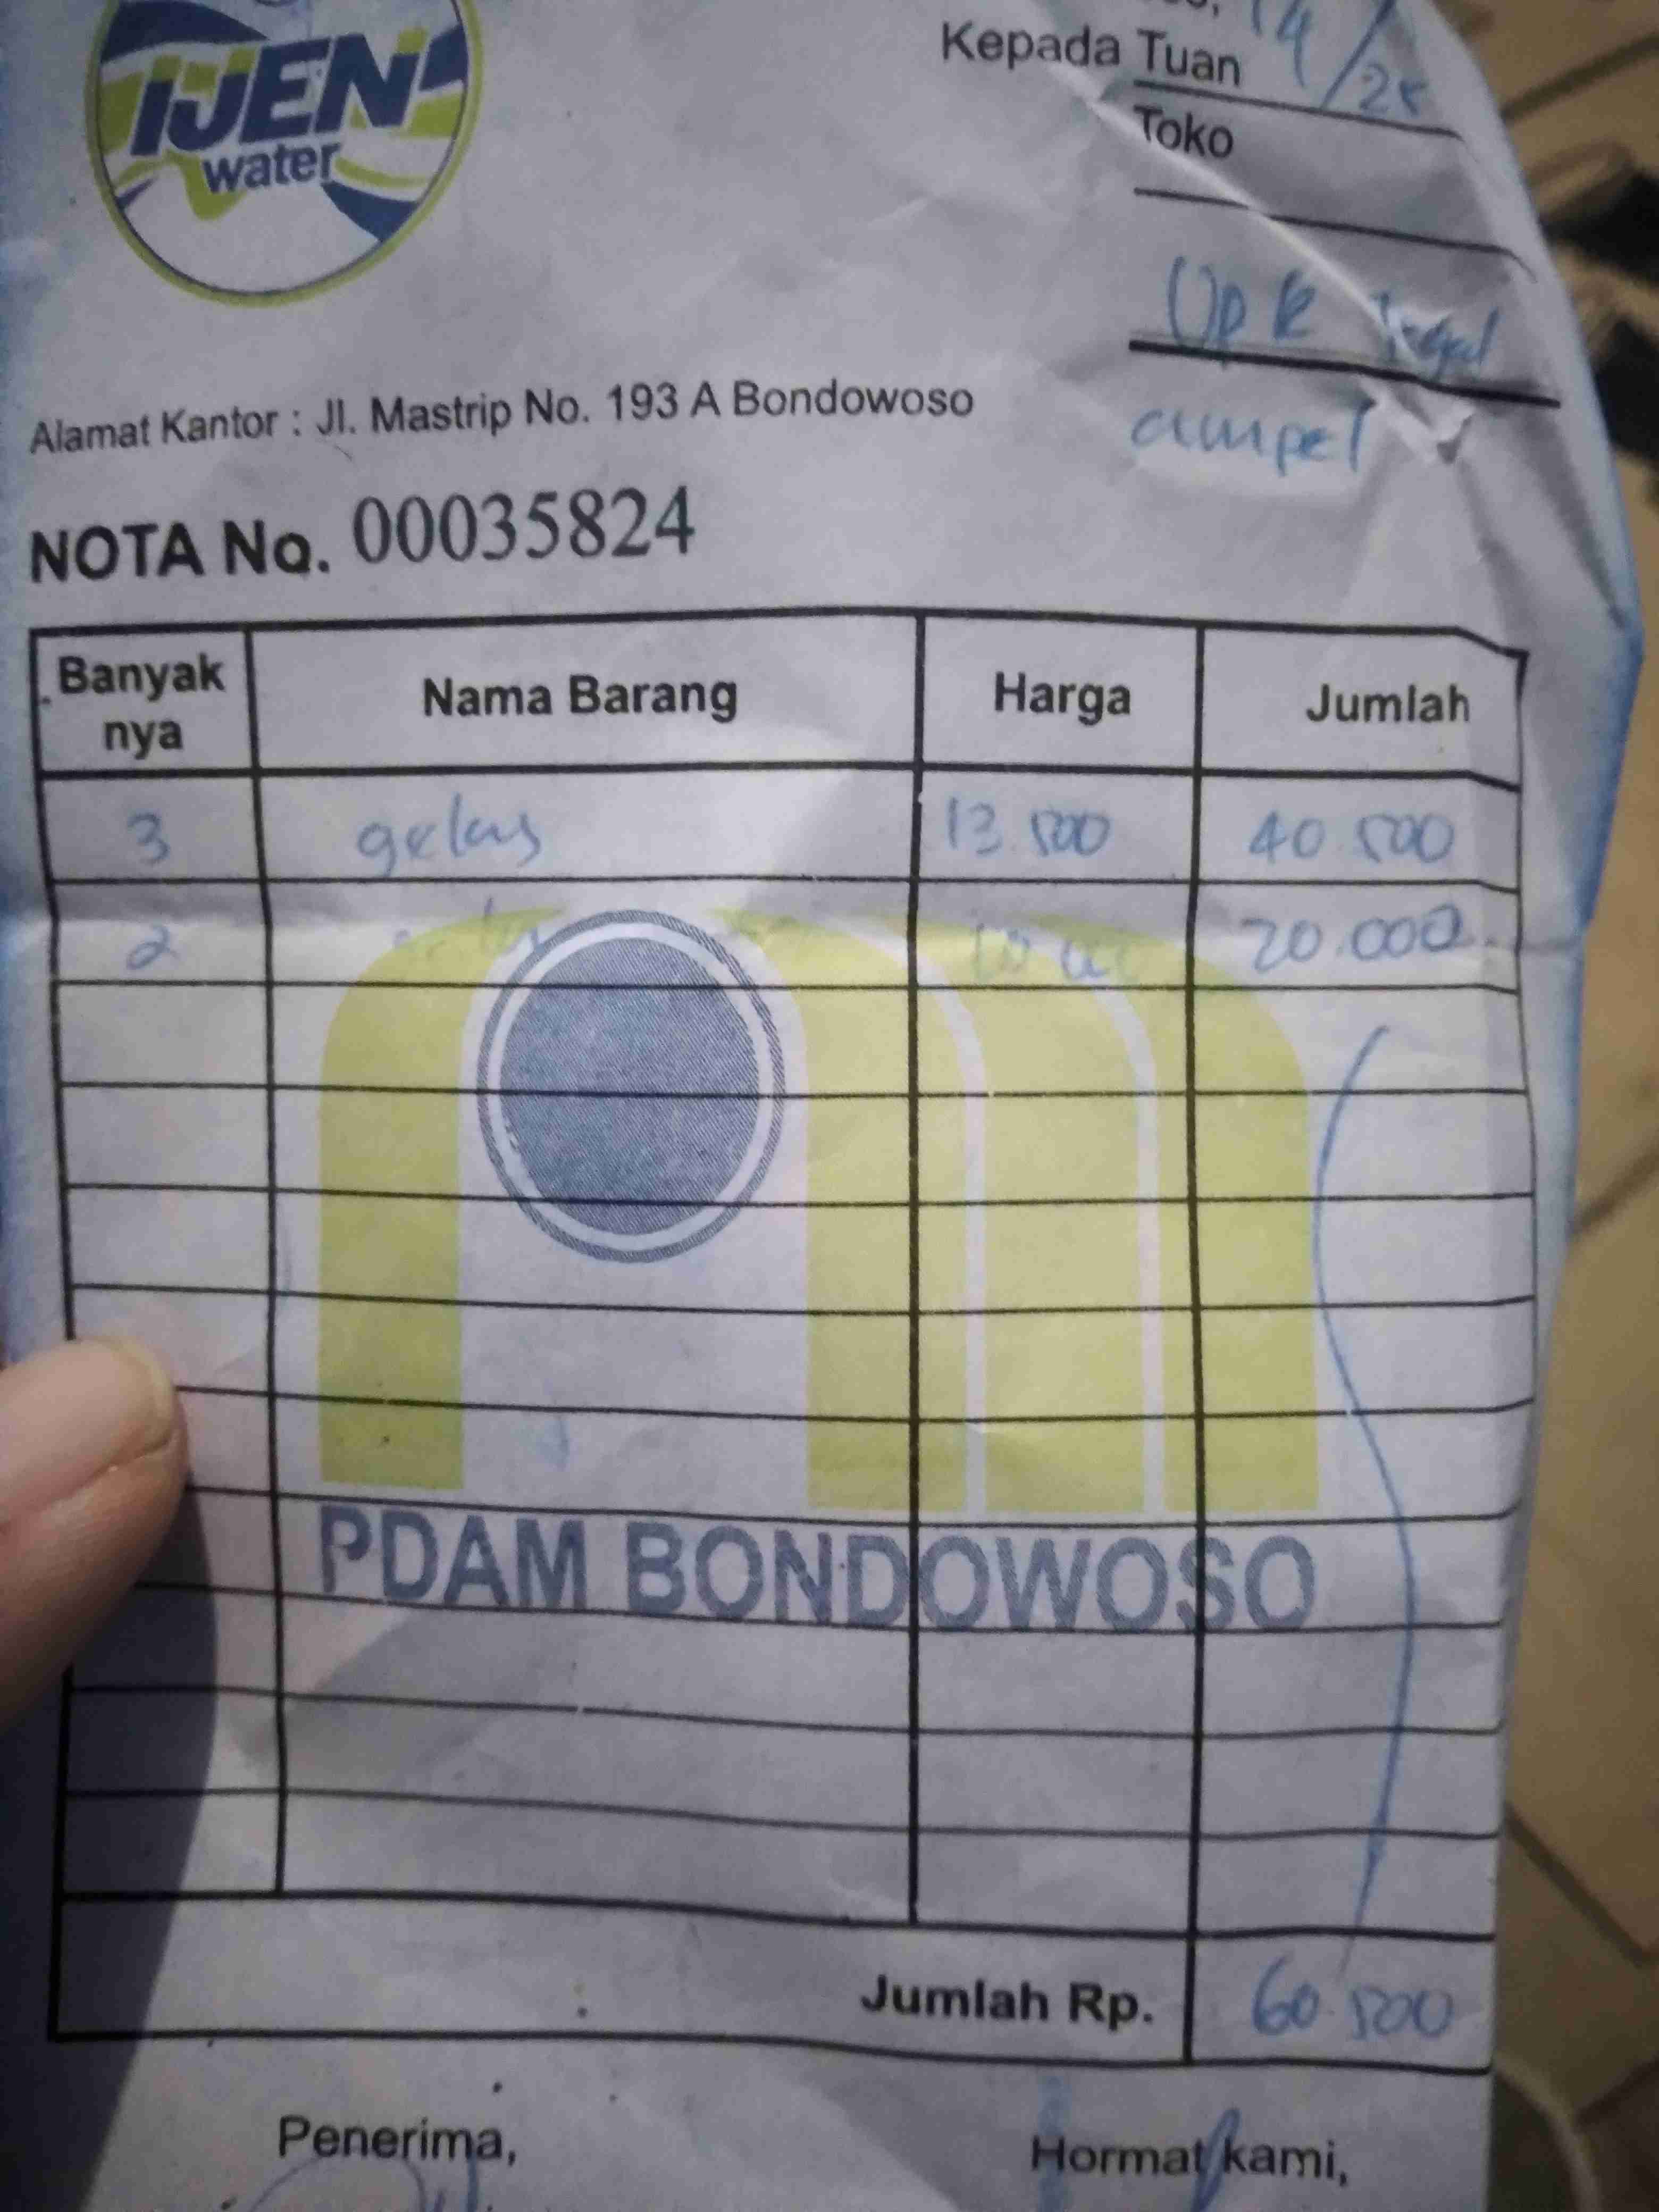 IJEN
water
14/25
Kepada Tuan
Toko
Upk Tegal
ampel
Alamat Kantor : Jl. Mastrip No. 193 A Bondowoso
NOTA No. 00035824
Banyak nya Nama Barang Harga Jumlah
3 gelas 13.500 40.500
2 20.000
PDAM BONDOWOSO
Jumlah Rp. 60.500
Penerima, Hormat kami,